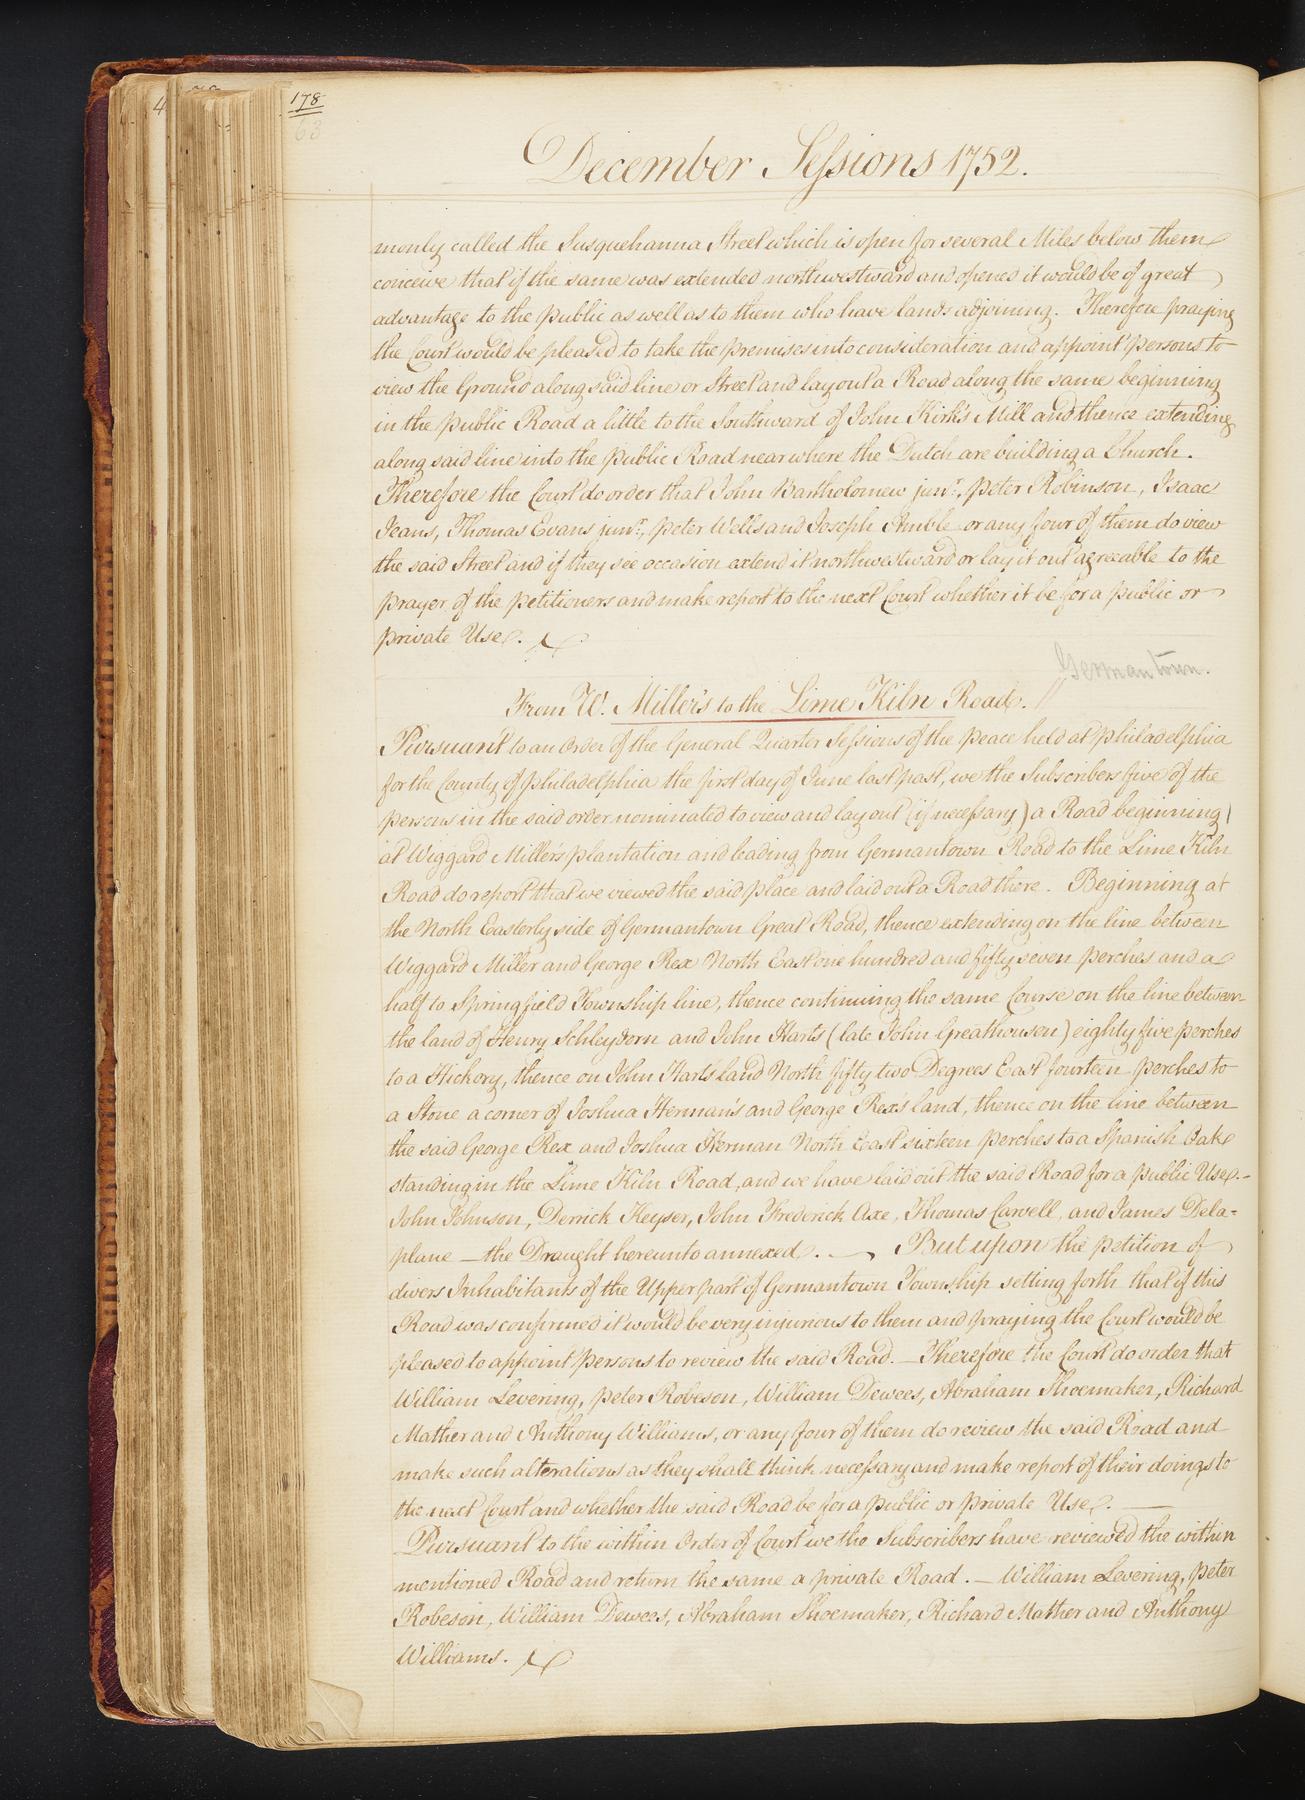 178
63
December Sessions 1752.
monly called the Susquehanna Street which is open for several Miles below them
conceive that if the same was extended northwestward and opened it would be of great
advantage to the public as well as to them who have lands adjoining. Therefore praying
the Court would be pleased to take the premises into consideration and appoint persons to
view the Ground along said line or Street and lay out a Road along the same beginning
in the public Road a little to the Southward of John Kirk's Mill and thence extending
along said line into the public Road near where the Dutch are building a Church.
Therefore the Court do order that John Bartholomew junr., Peter Robinson, Isaac
Jeans, Thomas Evans junr., Peter Wells and Joseph Amble or any four of them do view
the said Street and if they see occasion extend it northwestward or lay it out agreeable to the
prayer of the petitioners and make report to the next Court whether it be for a public or
private Use.
Germantown.
From W. Miller's to the Lime Kiln Road.
Pursuant to an Order of the General Quarter Sessions of the peace held at Philadelphia
for the County of Philadelphia the first day of June last past, we the Subscribers five of the
persons in the said order nominated to view and lay out (if necessary) a Road beginning
at Wiggard Miller's plantation and leading from Germantown Road to the Lime Kiln
Road do report that we viewed the said place and laid out a Road there. Beginning at
the North Easterly side of Germantown Great Road, thence extending on the line between
Wiggard Miller and George Rex North East one hundred and fifty seven perches and a
half to Springfield Township line, thence continuing the same Course on the line between
the land of Henry Schleydorn and John Harts (late John Greathousen) eighty five perches
to a Hickory, thence on John Harts land North fifty two Degrees East fourteen perches to
a Stone a corner of Joshua Herman's and George Rex's land, thence on the line between
the said George Rex and Joshua Herman North East sixteen perches to a Spanish Oak
standing in the Lime Kiln Road, and we have laid out the said Road for a public Use.-
John Johnson, Derrick Keyser, John Frederick Axe, Thomas Carvell and James Dela=
plane — the Draught hereunto annexed. — But upon the petition of
divers Inhabitants of the Upper part of Germantown Township setting forth that if this
Road was confirmed it would be very injurious to them and praying the Court would be
pleased to appoint persons to review the said Road. — Therefore the Court do order that
William Levering, Peter Robeson, William Dewees, Abraham Shoemaker, Richard
Mather and Anthony Williams, or any four of them do review the said Road and
make such alterations as they shall think necessary and make report of their doings to
the next Court and whether the said Road be for a public or private Use. —
Pursuant to the within Order of Court we the Subscribers have reviewed the within
mentioned Road and return the same a private Road. — William Levering, Peter
Robeson, William Dewees, Abraham Shoemaker, Richard Mather and Anthony
Williams.